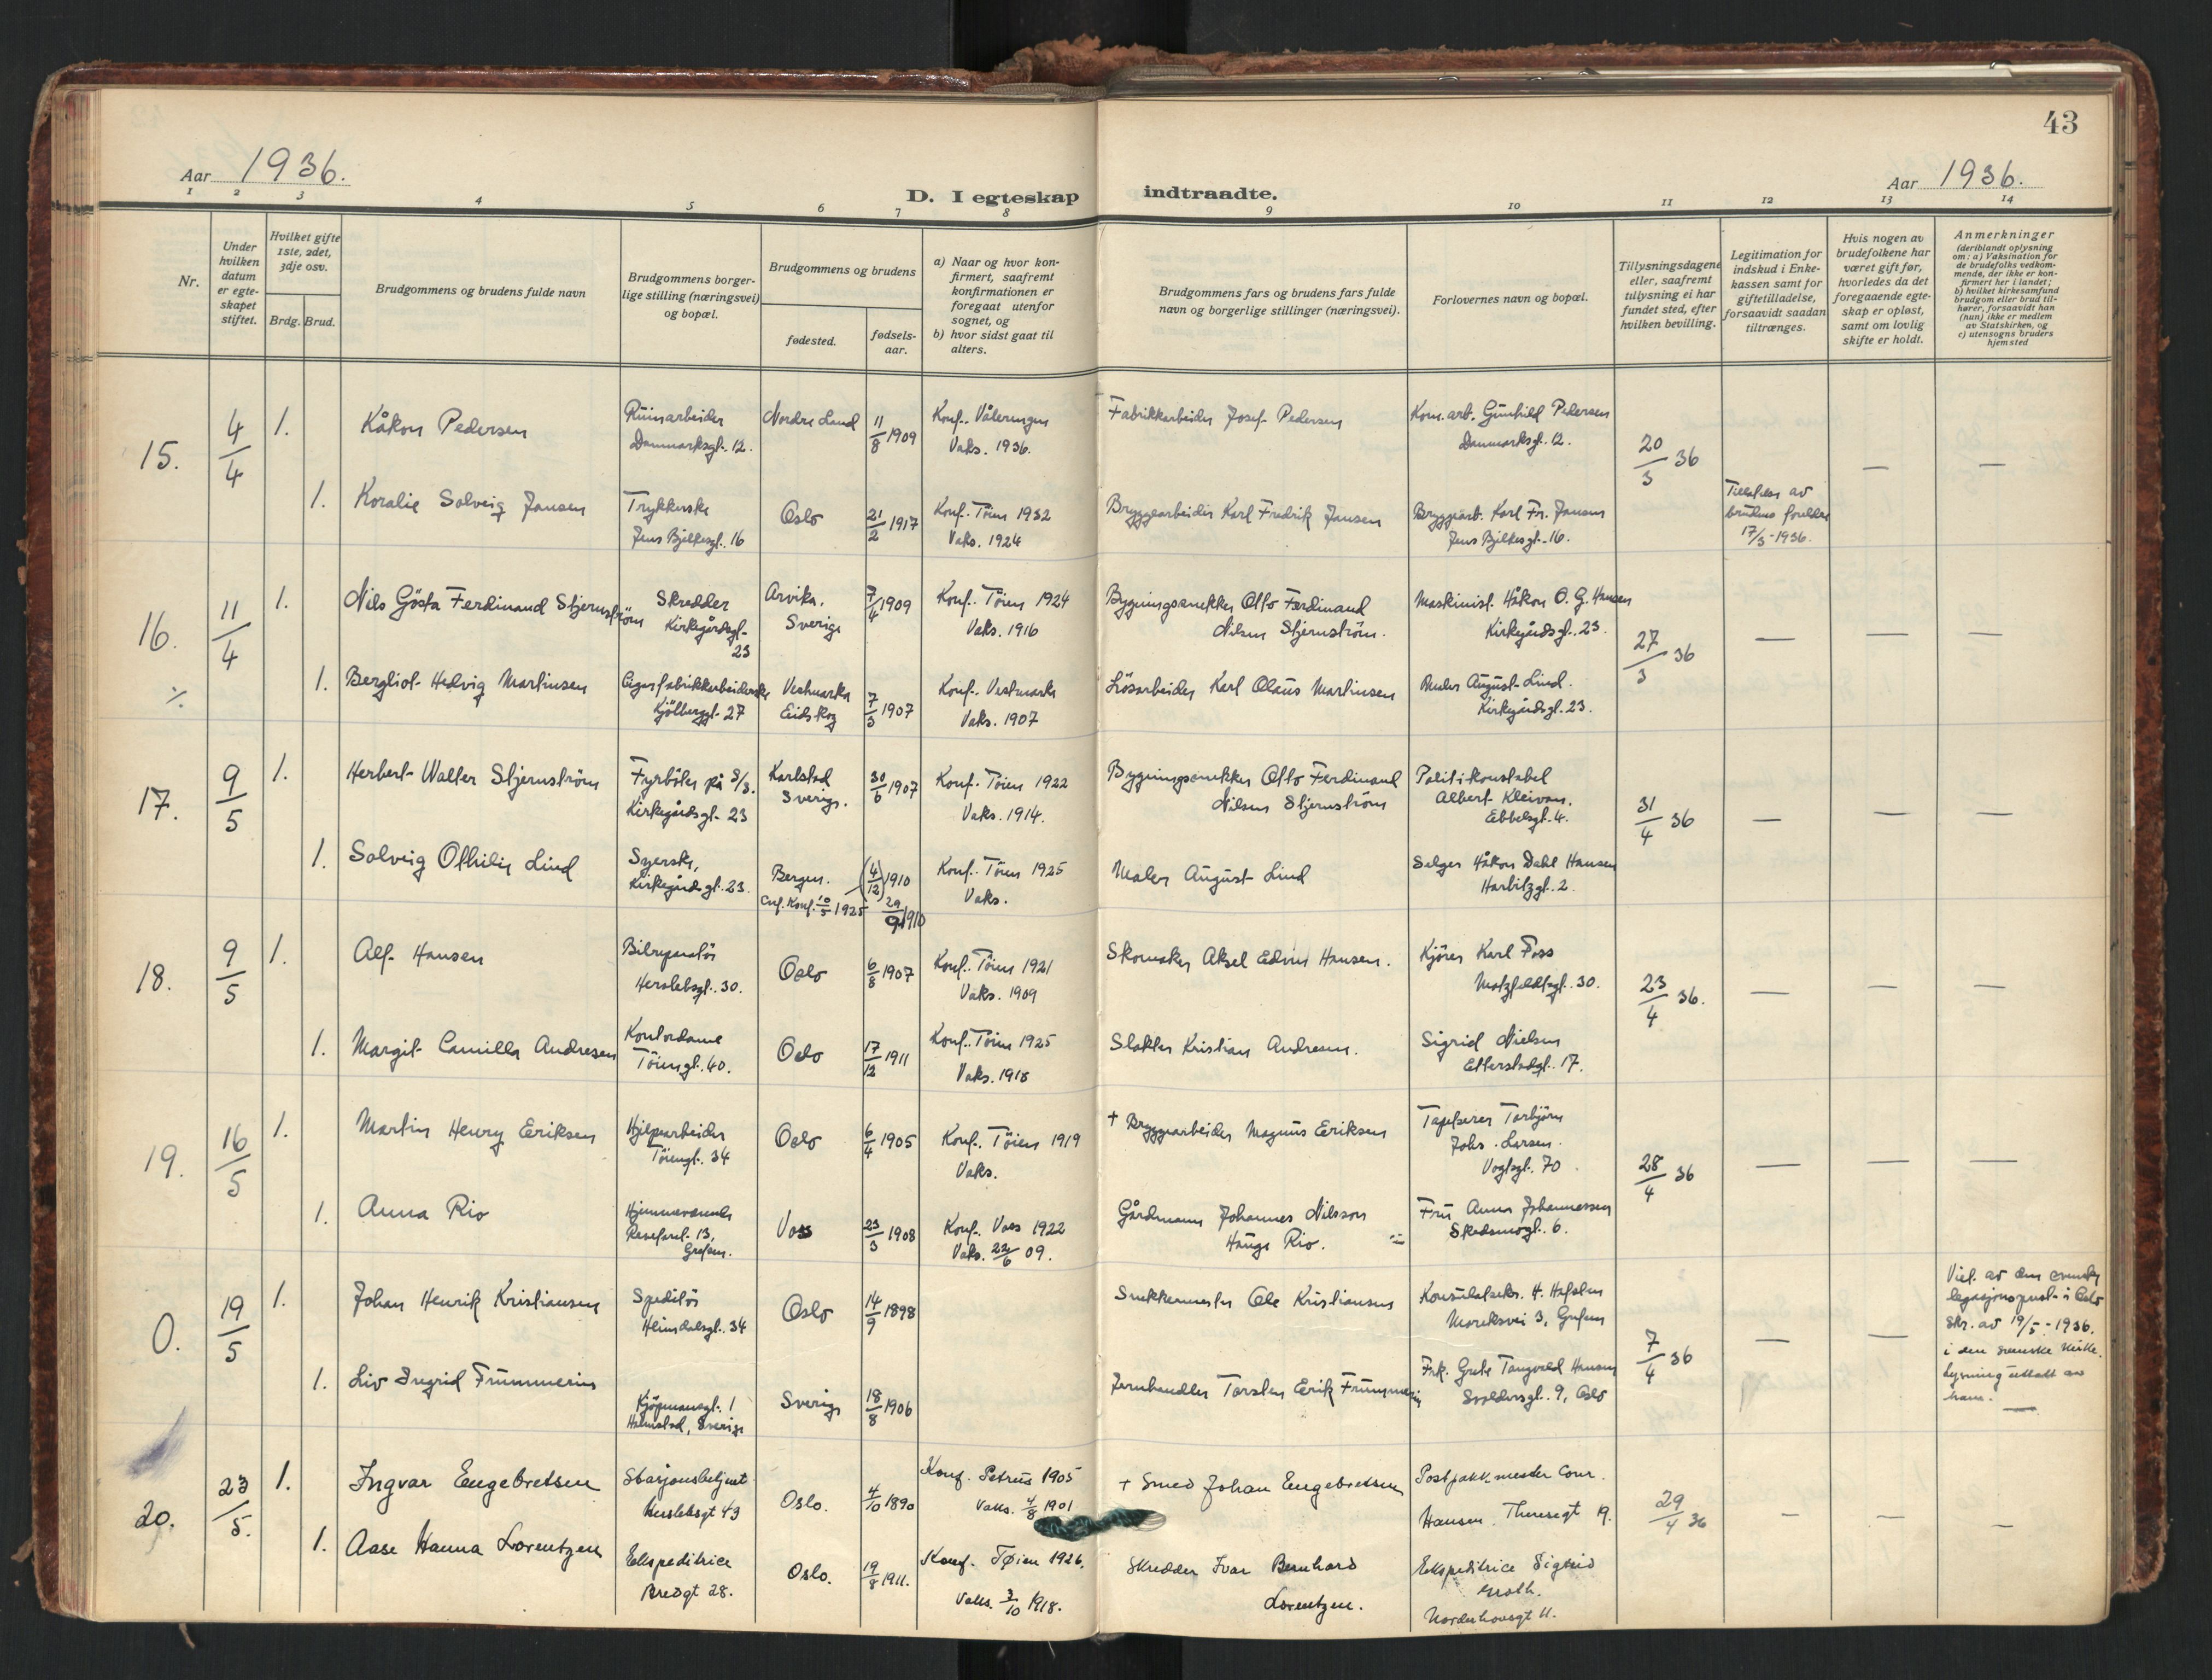 43
Aar 1936.
D. I egteskap indtraadte.
Aar 1936.
1 2 3 4 5 6 7 8 9 10 11 12 13 14
Nr.
Under hvilken datum er egteskapet stiftet.
Hvilket gifte 1ste, 2det, 3dje osv.
Brdg. Brud.
Brudgommens og brudens fulde navn
Brudgommens borgerlige stilling (næringsvei) og bopæl.
Brudgommens og brudens
fødested.
fødselsaar.
a) Naar og hvor konfirmert, saafremt konfirmationen er foregaat utenfor sognet, og
b) hvor sidst gaat til alters.
Brudgommens fars og brudens fars fulde navn og borgerlige stillinger (næringsvei).
Forlovernes navn og bopæl.
Tillysningsdagene eller, saafremt tillysning ei har fundet sted, efter hvilken bevilling.
Legitimation for indskud i Enkekassen samt for giftetilladelse, forsaavidt saadan tiltrænges.
Hvis nogen av brudefolkene har været gift før, hvorledes da det foregaaende egteskap er opløst, samt om lovlig skifte er holdt.
Anmerkninger
(deriblandt oplysning om: a) Vaksination for de brudefolks vedkommende, der ikke er konfirmert her i landet; b) hvilket kirkesamfund brudgom eller brud tilhører, forsaavidt han (hun) ikke er medlem av Statskirken, og c) utensogns bruders hjemsted
15. 4/4 1. Håkon Pedersen
Danmarksgt. 12.
Nordre Land 11/8 1909
Konf. Vålerengen
Vaks. 1936.
Fabrikkarbeider Josef Pedersen
Kom.arb. Gunhild Pedersen
Danmarksgt. 12.
20/3 36 — —
1. Koralie Solveig Jansen
Trykkerske
Jens Bjelkesgt. 16
Oslo 21/2 1917
Konf. Tøien 1932
Vaks. 1924
Bryggearbeider Karl Fredrik Jansen
Bryggearb. Karl Fr. Jansen
Jens Bjelkesgt. 16.
Tillatelse av
brudens foreldre
17/3-1936.
16. 11/4 1. Nils Gösta Ferdinand Stjernström
Skredder
Kirkegårdsgt.
23
Arvika,
Sverige
7/4 1909
Konf. Tøien 1924
Vaks. 1916
Bygningssnekker Otto Ferdinand
Nilsen Stjernström.
Maskinist Håkon O. G. Hansen
Kirkegårdsgt. 23.
27/3 36 — — —
1. Bergliot Hedvig Martinsen
Cigarfabrikkarbeiderske
Kjølberggt. 27
Vestmarka
Eidskog
7/3 1907
Konf. Vestmarka
Vaks. 1907
Løsarbeider Karl Olaus Martinsen
Maler August Lind.
Kirkegårdsgt. 23.
17. 9/5 1. Herbert Walter Stjernström
Fyrbøter på S/S.
Kirkegårdsgt. 23
Karlstad
Sverige.
30/6 1907
Konf. Tøien 1922
Vaks. 1914.
Bygningssnekker Otto Ferdinand
Nilsen Stjernström
Politikonstabel
Albert Kleivan.
Ebbelsgt. 4.
31/4 36 — — —
1. Solveig Othilie Lind
Syerske,
Kirkegårdsgt. 23.
Bergen.
(4/12) 1910
Konf. 10/5 1925 29/9 1910
Konf. Tøien 1925
Vaks.
Maler August Lind
Selger Håkon Dahl Hansen
Harbitzgt. 2.
18. 9/5 1. Alf Hansen
Bilreparatør
Herslebsgt. 30.
Oslo 6/8 1907
Konf. Tøien 1921
Vaks. 1909
Skomaker Aksel Edvin Hansen.
Kjører Karl Foss
Motzfeldtsgt. 30.
23/4 36. — — —
1. Margit Camilla Andresen
Kontordame
Tøiengt. 40.
Oslo 17/12 1911
Konf. Tøien 1925
Vaks. 1918
Slakter Kristian Andresen.
Sigrid Nielsen
Etterstadgt. 17.
19. 16/5 1. Martin Henry Eriksen
Hjelpearbeider
Tøiengt. 34
Oslo 6/4 1905
Konf. Tøien 1919
Vaks.
+ Bryggearbeider Magnus Eriksen
Tapetserer Torbjørn
Johs. Larsen.
Vogtsgt. 70
28/4 36 — — —
1. Anna Rio
Hjemmeværende
Grefsen.
Voss 23/3 1908
Konf. Voss 1922
Vaks. 22/6 09.
Gårdmann Johannes Nilsson
Hauge Rio.
Fru Anna Johannessen
Skedsmogt. 6.
0. 19/5 1. Johan Henrik Kristiansen
Speditør
Heimdalsgt. 34
Oslo 14/9 1898
Snekkermester Ole Kristiansen
Konsulatsekr. H. Hafsten
3, Grefsen
7/4 36 — —
Viet av den svenske
legasjonsprest i Oslo
Skr. av 19/5-1936.
i den svenske kirke.
Lysning uttatt av
ham. —
1. Liv Ingrid Frummerin
Kjøpmansgt. 1
Halmstad, Sverige
Sverige 18/8 1906
Jernhandler Torsten Erik Frummerin
Frk. Grete Tangvald Hansen
Svoldersgt. 9, Oslo
20. 23/5. 1. Ingvar Engebretsen
Stasjonsbetjent
Herslebsgt 43
Oslo. 4/10 1890
Konf. Petrus 1905
Vaks. 4/8 1901
+ Smed Johan Engebretsen
Postpakkmester Conr.
Hansen. Theresegt 19.
29/4 36 — — —
1. Aase Hanna Lorentzen
Ekspeditrice
Bredgt 28.
Oslo. 19/8 1911.
Konf. Tøien 1926.
Vaks. 3/10 1918.
Skredder Ivar Bernhard
Lorentzen.
Ekspeditrice Sigrid
Groth.
Norderhovsgt 11.